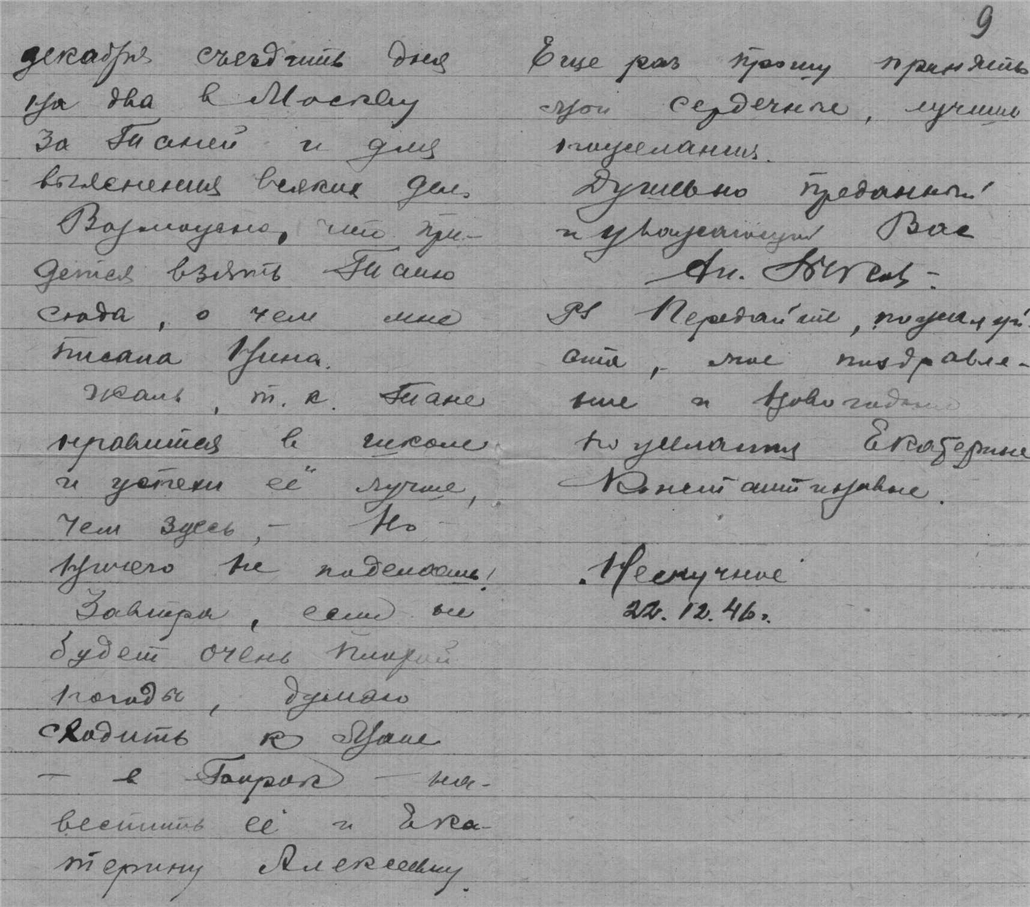 декабря съездить дня
на два в Москву
за Таней и для
выяснения всяких дел.
Возможно, что при-
дется взять Таню
сюда, о чем мне
писала Нина.
Жаль, т.к. Тане
нравится в школе
и успехи её лучше,
чем здесь, – Но
ничего не поделаешь!
Завтра, если не
будет очень плохой
погоды, думаю
сходить к Мане
– в – на-
вестить её и Ека-
терину Алексеевну.
9
Еще раз прошу принять
мои сердечные, лучшие
пожелания.
Душевно преданный
и уважающий Вас
Ан.
PS Передайте, пожалуй-
ста, мое поздравле-
ние и Новогодние
пожелания Екатерине
Константиновне.
Нескучное
22.12.46.